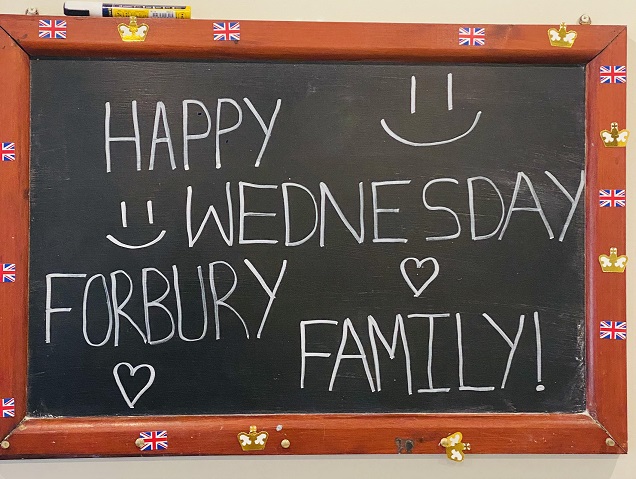 HAPPY
WEDNESDAY
FORBURY
FAMILY!